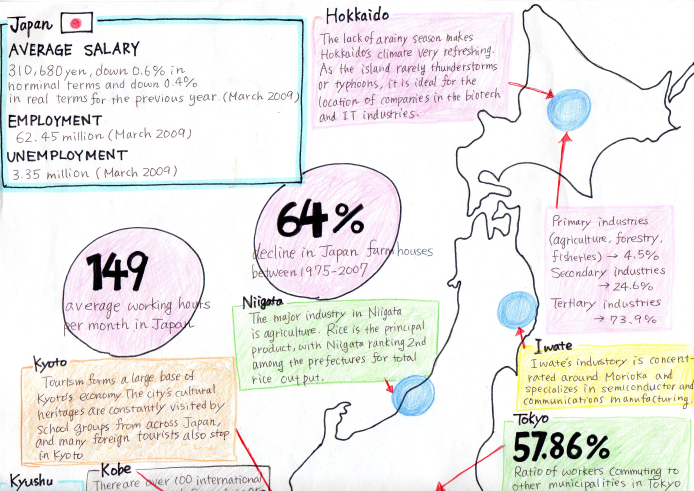 Japan
AVERAGE SALARY
310,680 yen, down 0.6% in
norminal terms and down 0.4%
in real terms for the previous year. (March 2009)
EMPLOYMENT
62.45 million (March 2009)
UNEMPLOYMENT
3.35 million (March 2009)
Hokkaido
The lack of a rainy season makes
Hokkaido's climate very refreshing.
As the island rarely thunderstorms
or typhoons, it is ideal for the
location of companies in the biotech
and IT industries.
64%
decline in Japan farmhouses
between 1975-2007
149
average working hours
per month in Japan
Primary industries
(agriculture, forestry,
fisheries) → 4.5%
Secondary industries
→ 24.6%
Tertiary industries
→ 73.9%
Niigata
The major industry in Niigata
is agriculture. Rice is the principal
product, with Niigata ranking 2nd
among the prefectures for total
rice output.
Iwate
Iwate's industory is concent-
rated around Morioka and
specializes in semiconductor and
communications manufacturing.
Kyoto
Tourism forms a large base of
Kyoto's economy. The city's cultural
heritages are constantly visited by
school groups from across Japan,
and many foreign tourists also stop
in Kyoto
Tokyo
57.86%
Ratio of workers commuting to
other municipalities in Tokyo
Kyushu
Kobe
There are over 100 international